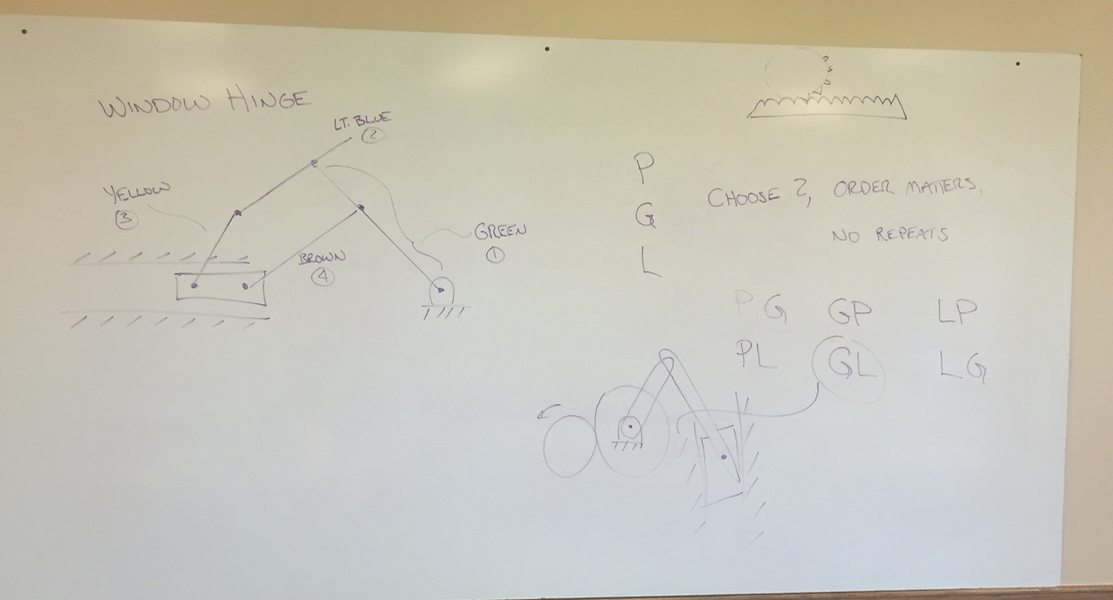 WINDOW HINGE
LT. BLUE
2
YELLOW
3
GREEN
1
BROWN
4
P
G
L
CHOOSE 2, ORDER MATTERS,
NO REPEATS
PG GP LP
PL GL LG